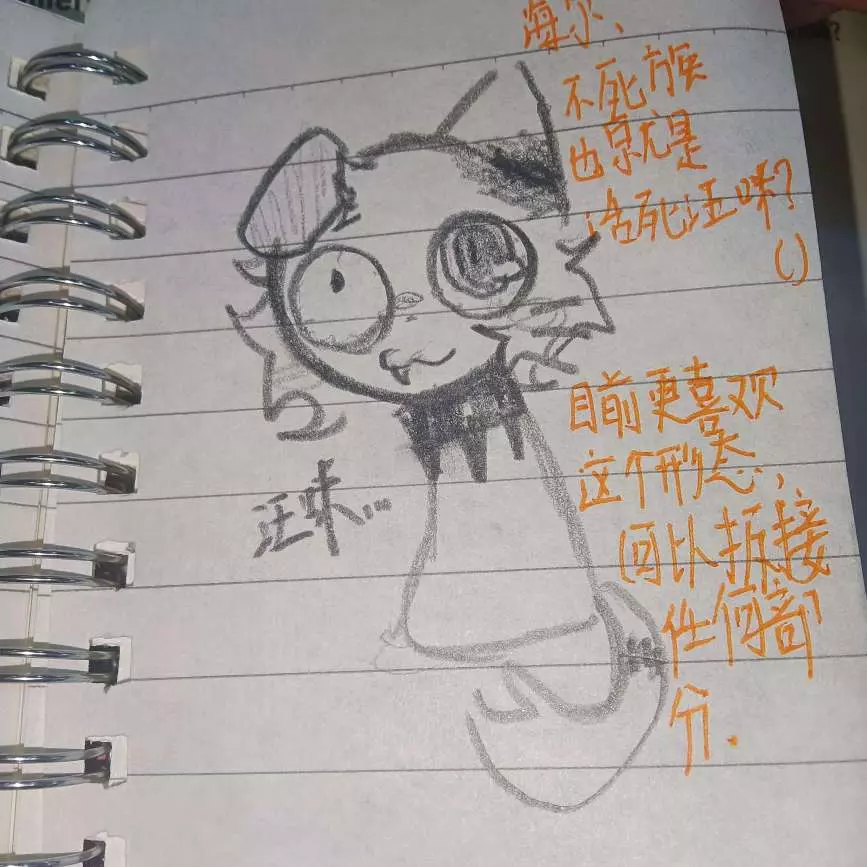 海尔、
不死族
也就是
活死汪咪?
()
目前更喜欢
这个形态,
(可以拆接
任何部
分.
汪咪...